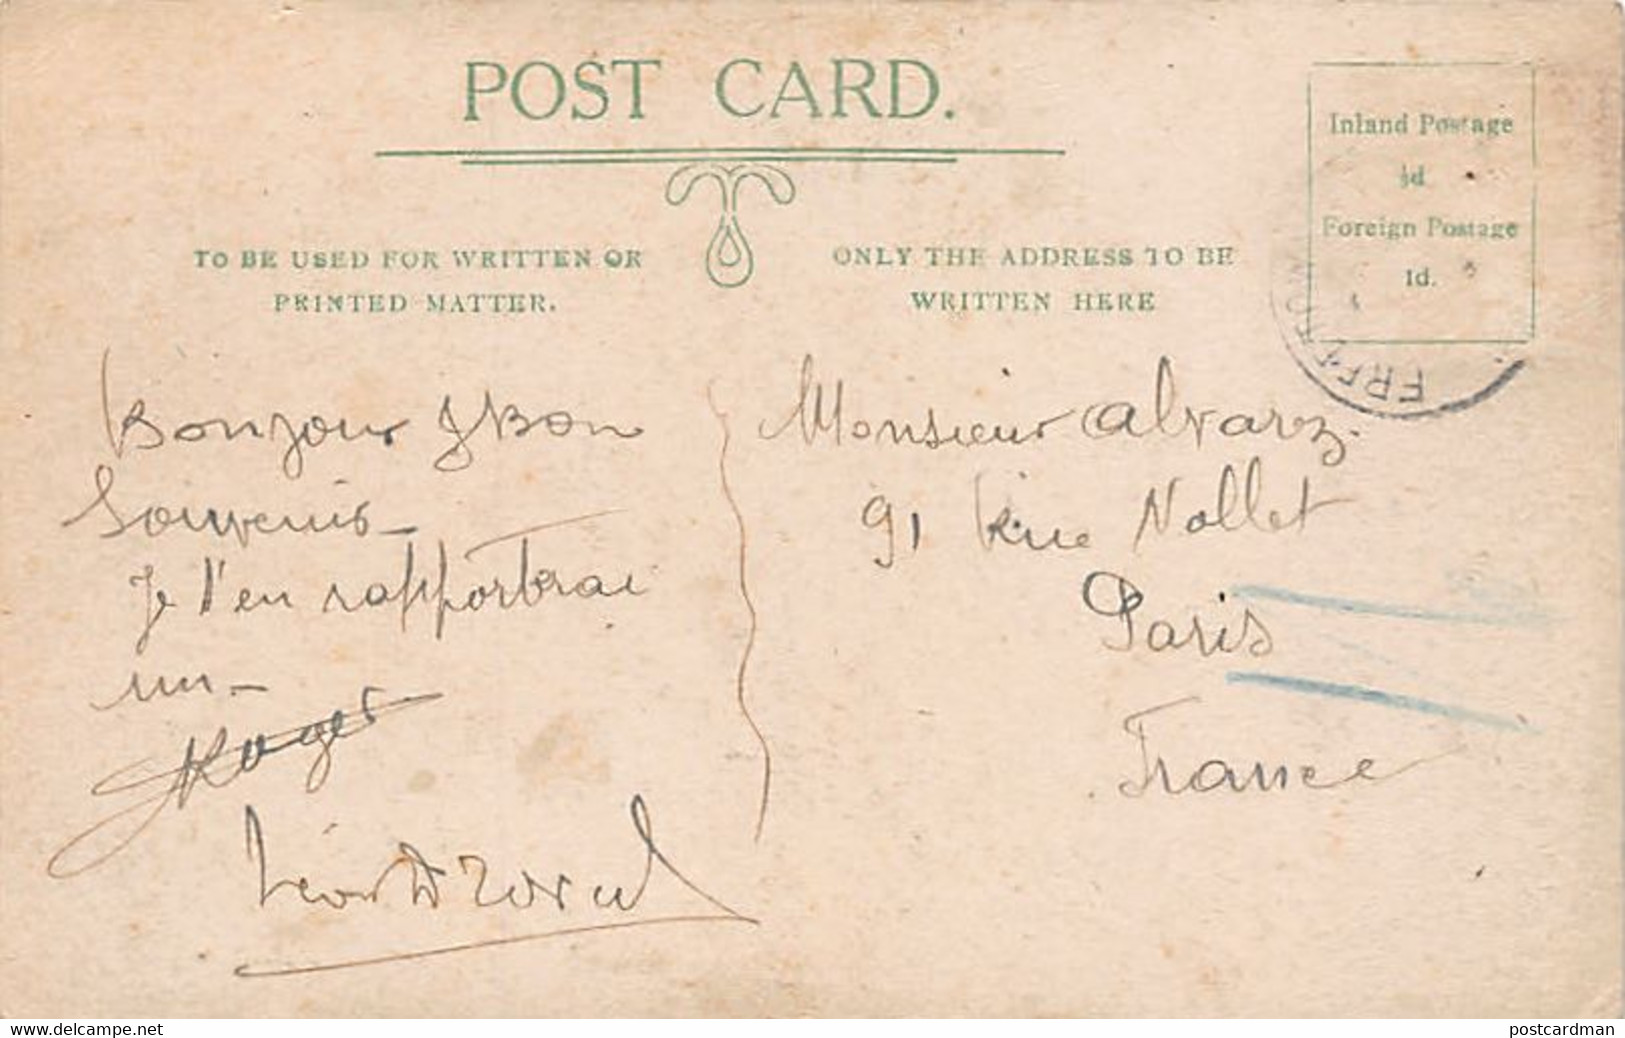 POST CARD.
Inland Postage
½d
Foreign Postage
1d.
TO BE USED FOR WRITTEN OR
PRINTED MATTER.
ONLY THE ADDRESS TO BE
WRITTEN HERE
FREETOWN
Bonjour & Bon
Souvenis
Je t'en rapporterai
un
Roger
Léon
Monsieur Alvarez.
91 Rue Nollet
Paris
France
www.delcampe.net
postcardman